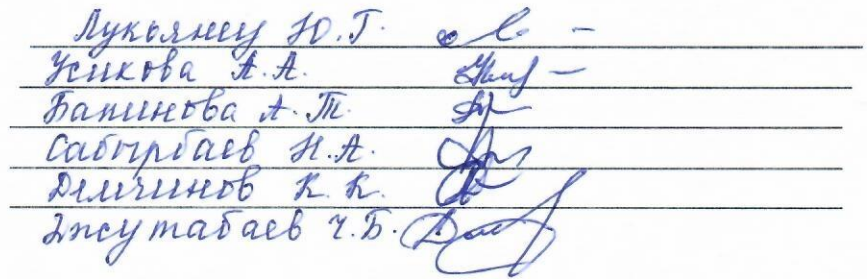 Лукьянец Ю.Г.
Усикова А.А.
Бапинова А.Т.
Сабырбаев Н.А.
Демчинов К.К.
Джумабаев Ч.Б.